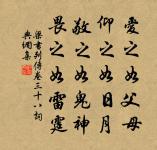 愛之如父母
仰之如日月
敬之如鬼神
畏之如雷霆
梁書列傳卷三十八詞
典網集